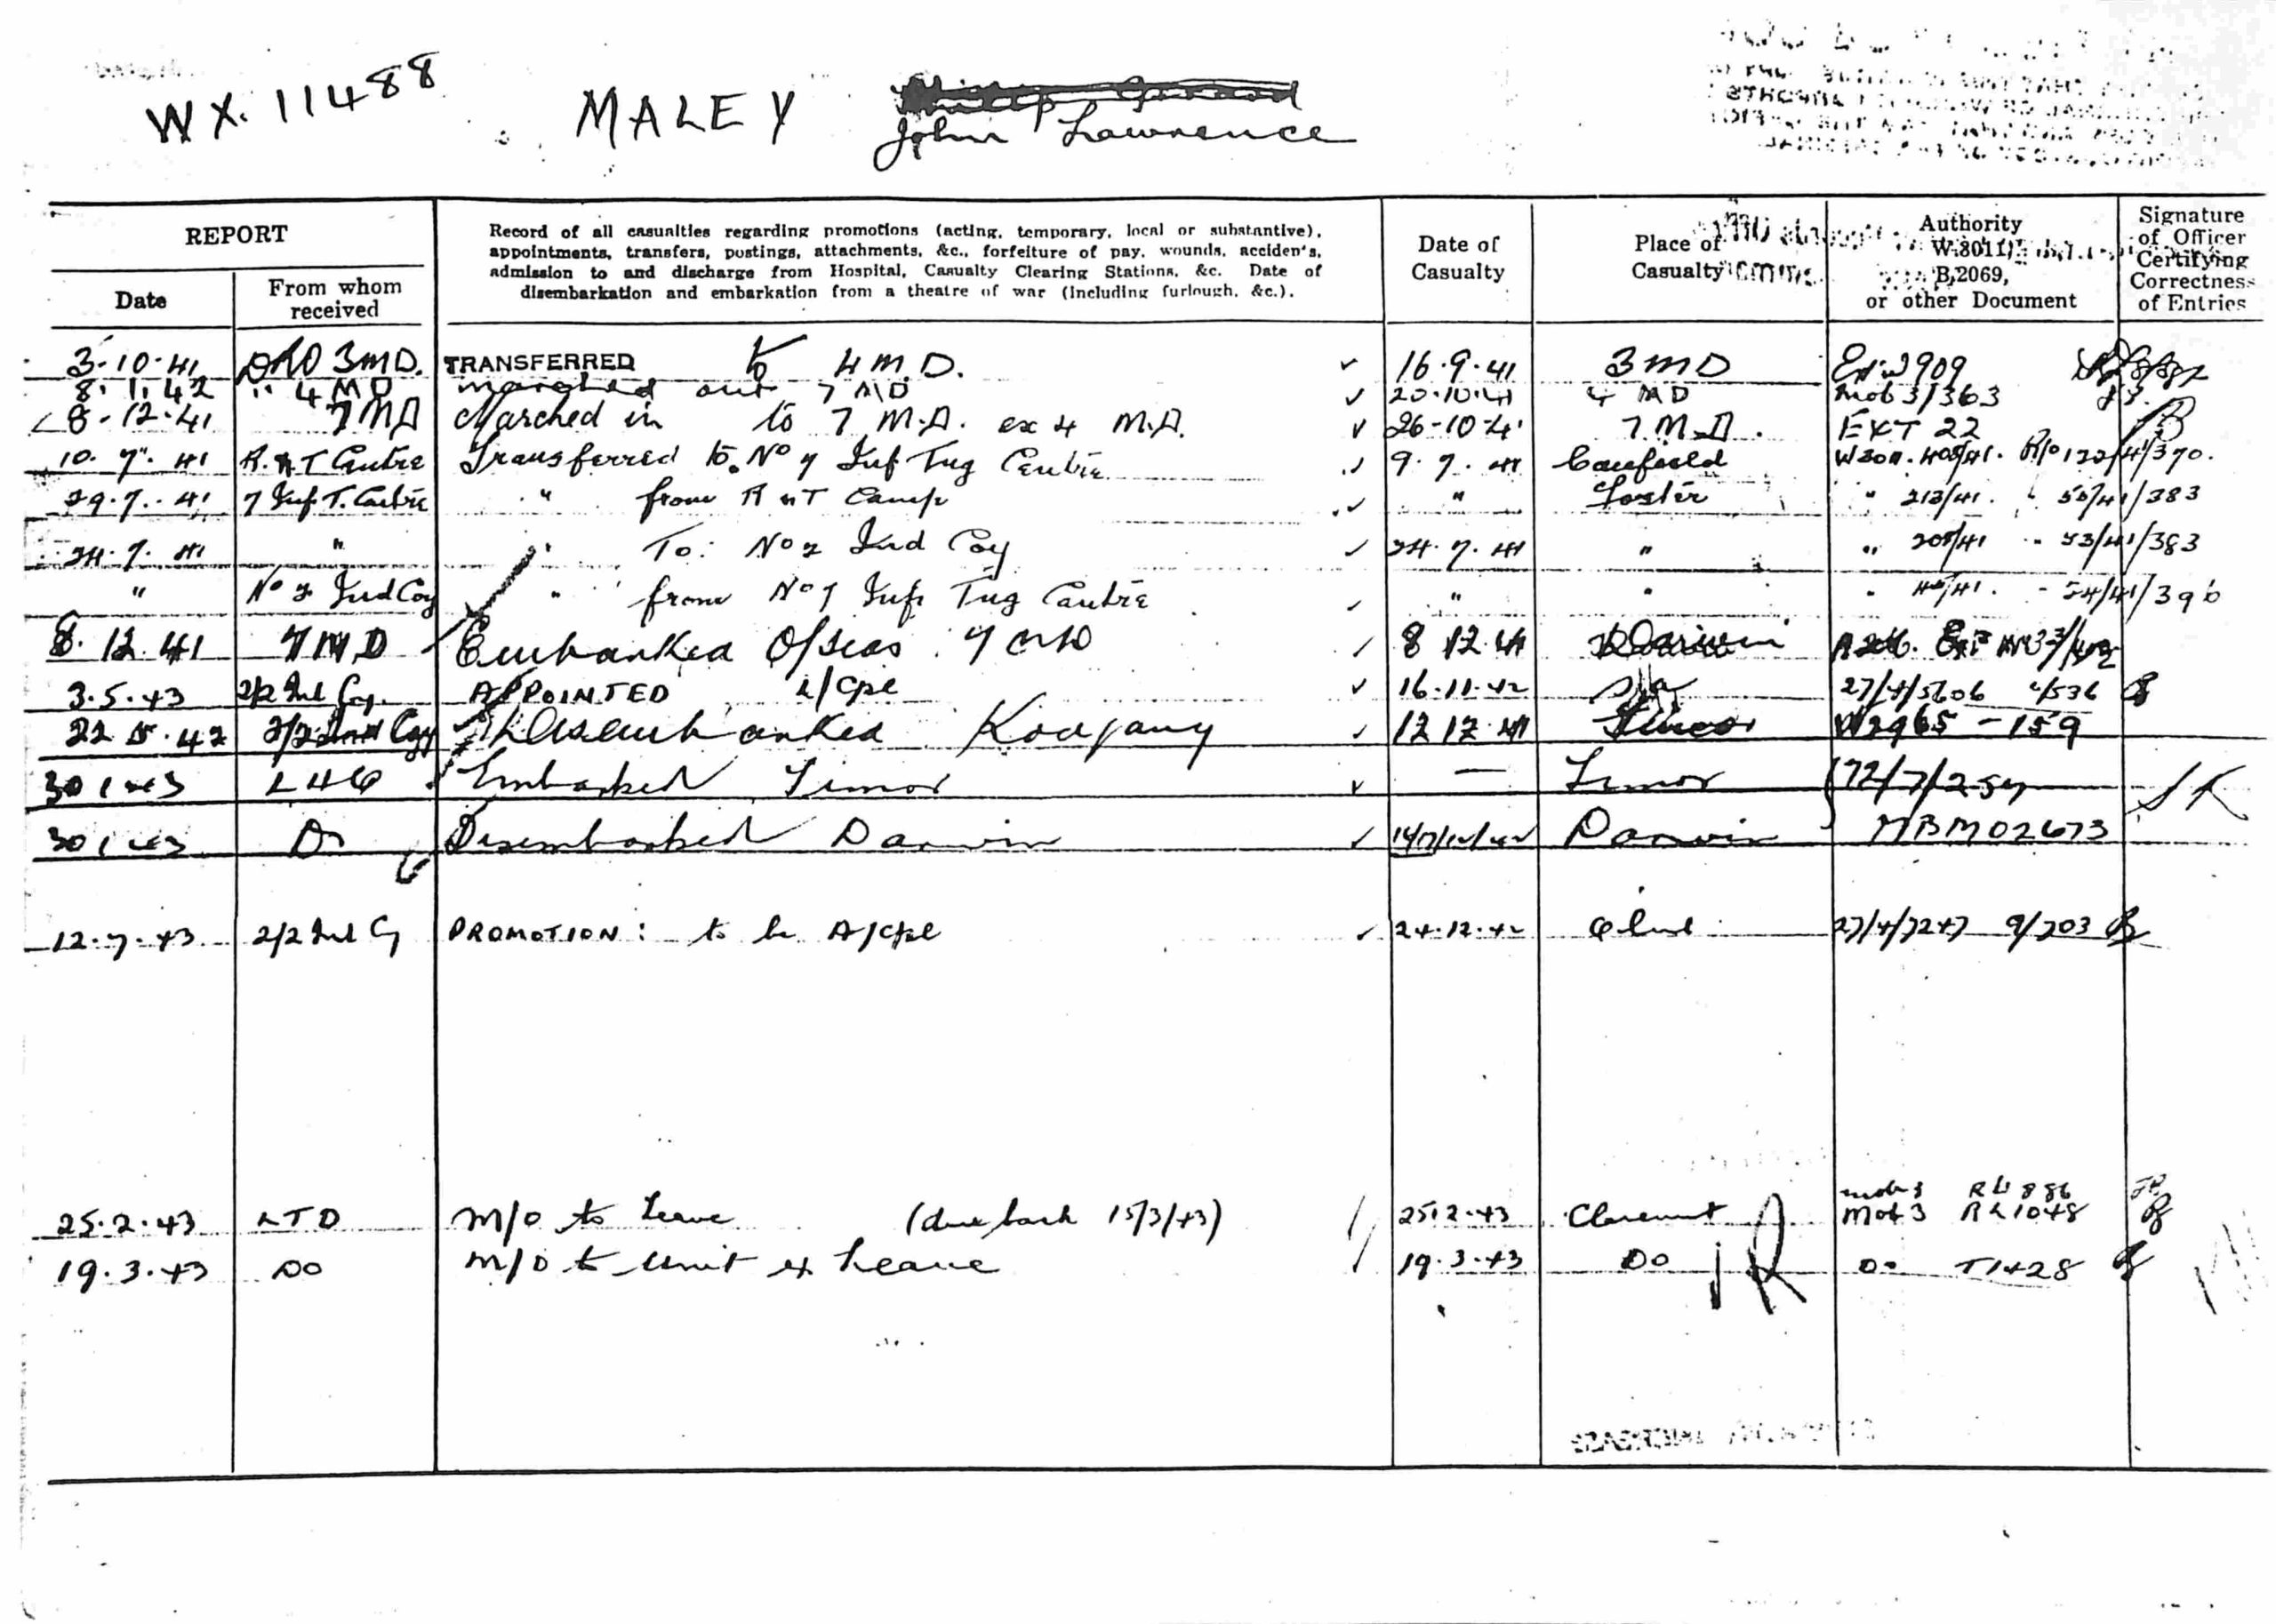 WX. 11488 MALEY
John Lawrence
REPORT
Date
From whom received
Record of all casualties regarding promotions (acting, temporary, local or substantive),
appointments, transfers, postings, attachments, &c., forfeiture of pay, wounds, acciden's,
admission to and discharge from Hospital, Casualty Clearing Stations, &c. Date of
disembarkation and embarkation from a theatre of war (including furlough, &c.).
Date of Casualty
Place of Casualty
Authority W.3011, B,2069, or other Document
Signature of Officer Certifying Correctness of Entries
3.10.41 DRO 3MD. TRANSFERRED to 4 M.D. 16.9.41 3MD 909
8.1.42 " 4 MD marched out 7 MD 20.10.41 4 MD Mob 3/363
8.12.41 7MD Marched in to 7 M.D. ex 4 M.D. 26-10-41 7.M.D. EXT 22
10.7.41 R.&T Centre Transferred to No 7 Inf Tng Centre 9.7.41 Caulfield
29.7.41 7 Inf T. Centre " from R & T Camp " Foster " 213/41. 50/41/383
24.7.41 " " To: No 2 Ind Coy 24.7.41 " " 205/41 " 53/41/383
" No 2 Ind Coy " from No 7 Inf Tng Centre " " " 54/41/396
8.12.41 7MD Embarked O/seas 8 12 41 Darwin
3.5.43 2/2 Ind Coy. APPOINTED L/Cpl 16.11.42 27/4/5606
22 5.42 2/2 Ind Coy Disembarked Koepang 12 12 41 Timor W2965 - 159
30 1 43 LHQ Embarked Timor — Timor 72/7/257
30 1 43 Do Disembarked Darwin Darwin MBM02673
12.7.43 2/2 Ind Cy PROMOTION: to be A/Cpl 24.12.42 27/4/7247 9/703
25.2.43 LTD M/O to Leave (due back 15/3/43) 25.2.43 Claremont Mob 3 RL886
Mob 3 RL1048
19.3.43 DO M/O to Unit ex Leave 19.3.43 DO Do T1428